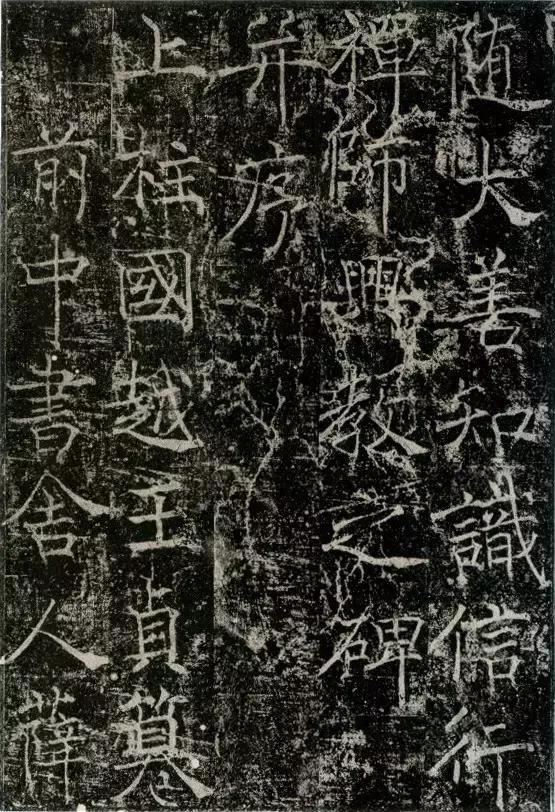 随大善知識信行
禪師興教之碑
并序
上柱國越王貞篡
前中書舍人薛